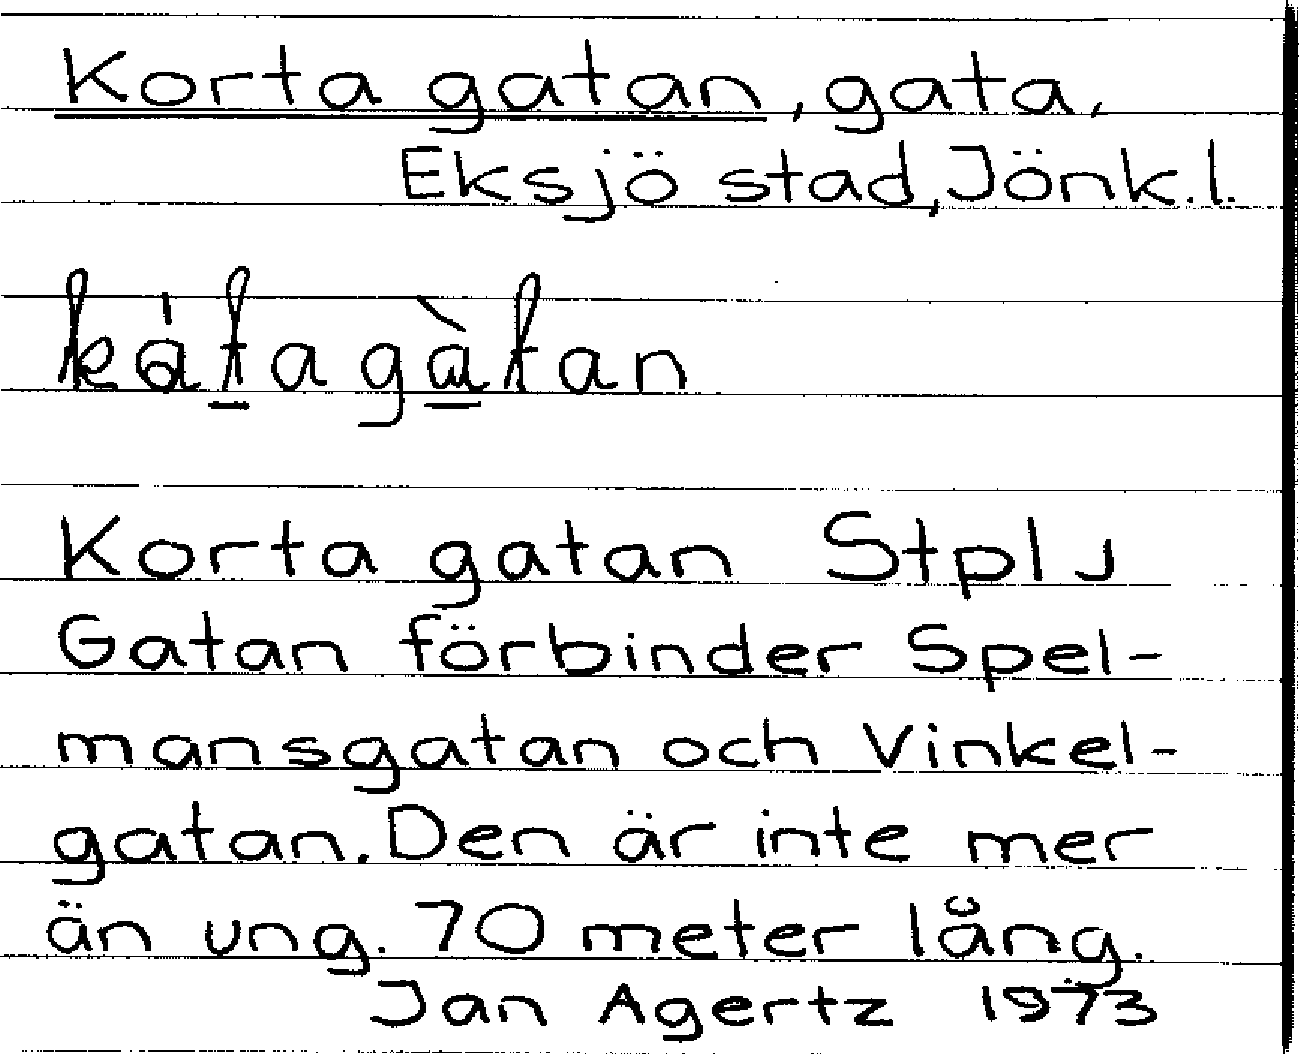 Korta gatan, gata,
Eksjö stad, Jönk.l.
Korta gatan Stpl J
Gatan förbinder Spel-
mansgatan och Vinkel-
gatan. Den är inte mer
än ung. 70 meter lång.
Jan Agertz 1973